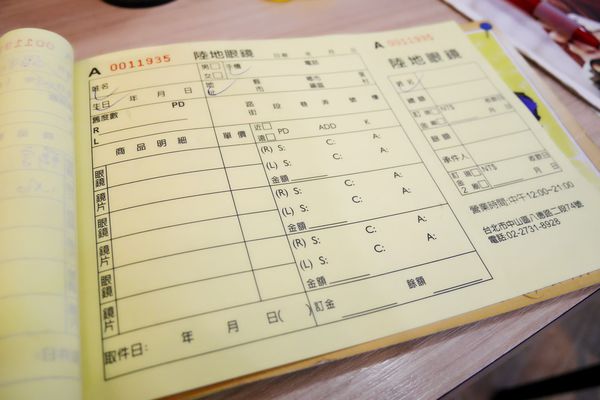 A 0011935 陸地眼鏡 日期 年 月 日
姓名 男 女 手機 電話
生日 年 月 日 地址 縣市 鄉鎮市區 村里
舊度數 PD 路街 段 巷 弄 號 樓
R
L 近 遠 PD ADD K
商品明細 單價 (R) S: C: A:
眼鏡 (L) S: C: A:
鏡片 金額
眼鏡 (R) S: C: A:
鏡片 (L) S: C: A:
金額
眼鏡 (R) S: C: A:
鏡片 (L) S: C: A:
金額
取件日: 年 月 日( ) 訂金 餘額
A 0011935
陸地眼鏡
姓名
總額
訂金 NT$ 收款日
餘額
承件人
訂金 1 2 現 線 NT$ 收款日
營業時間:中午12:00~21:00
台北市中山區八德路二段74號
電話:02-2731-8928